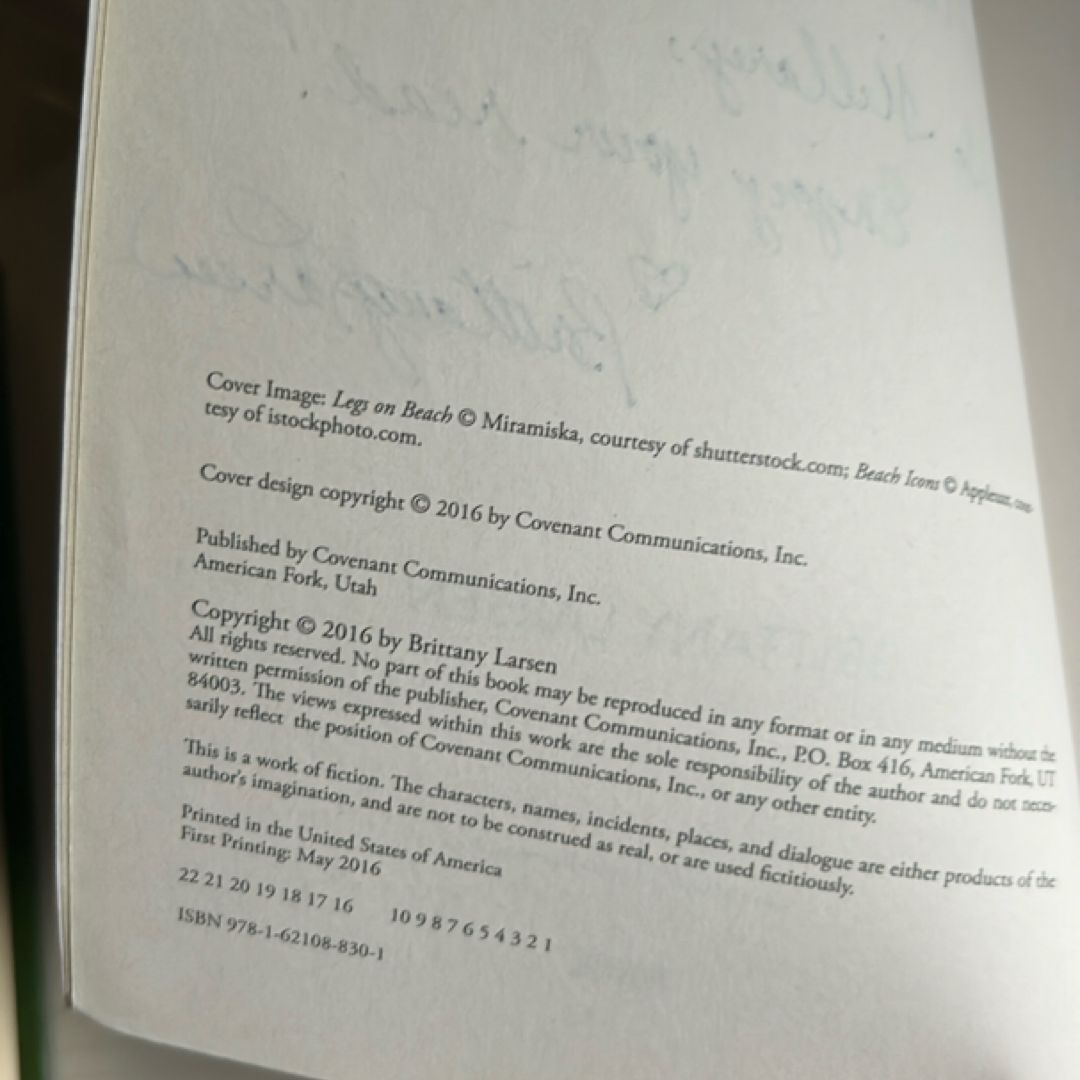 Hillary,
Enjoy your read!
Cover Image: Legs on Beach © Miramiska, courtesy of shutterstock.com; Beach Icons ©
tesy of istockphoto.com.
Cover design copyright © 2016 by Covenant Communications, Inc.
Published by Covenant Communications, Inc.
American Fork, Utah
Copyright © 2016 by Brittany Larsen
All rights reserved. No part of this book may be reproduced in any format or in any medium without the
written permission of the publisher, Covenant Communications, Inc., P.O. Box 416, American Fork, UT
84003. The views expressed within this work are the sole responsibility of the author and do not neces-
sarily reflect the position of Covenant Communications, Inc., or any other entity.
This is a work of fiction. The characters, names, incidents, places, and dialogue are either products of the
author's imagination, and are not to be construed as real, or are used fictitiously.
Printed in the United States of America
First Printing: May 2016
22 21 20 19 18 17 16 10 9 8 7 6 5 4 3 2 1
ISBN 978-1-62108-830-1